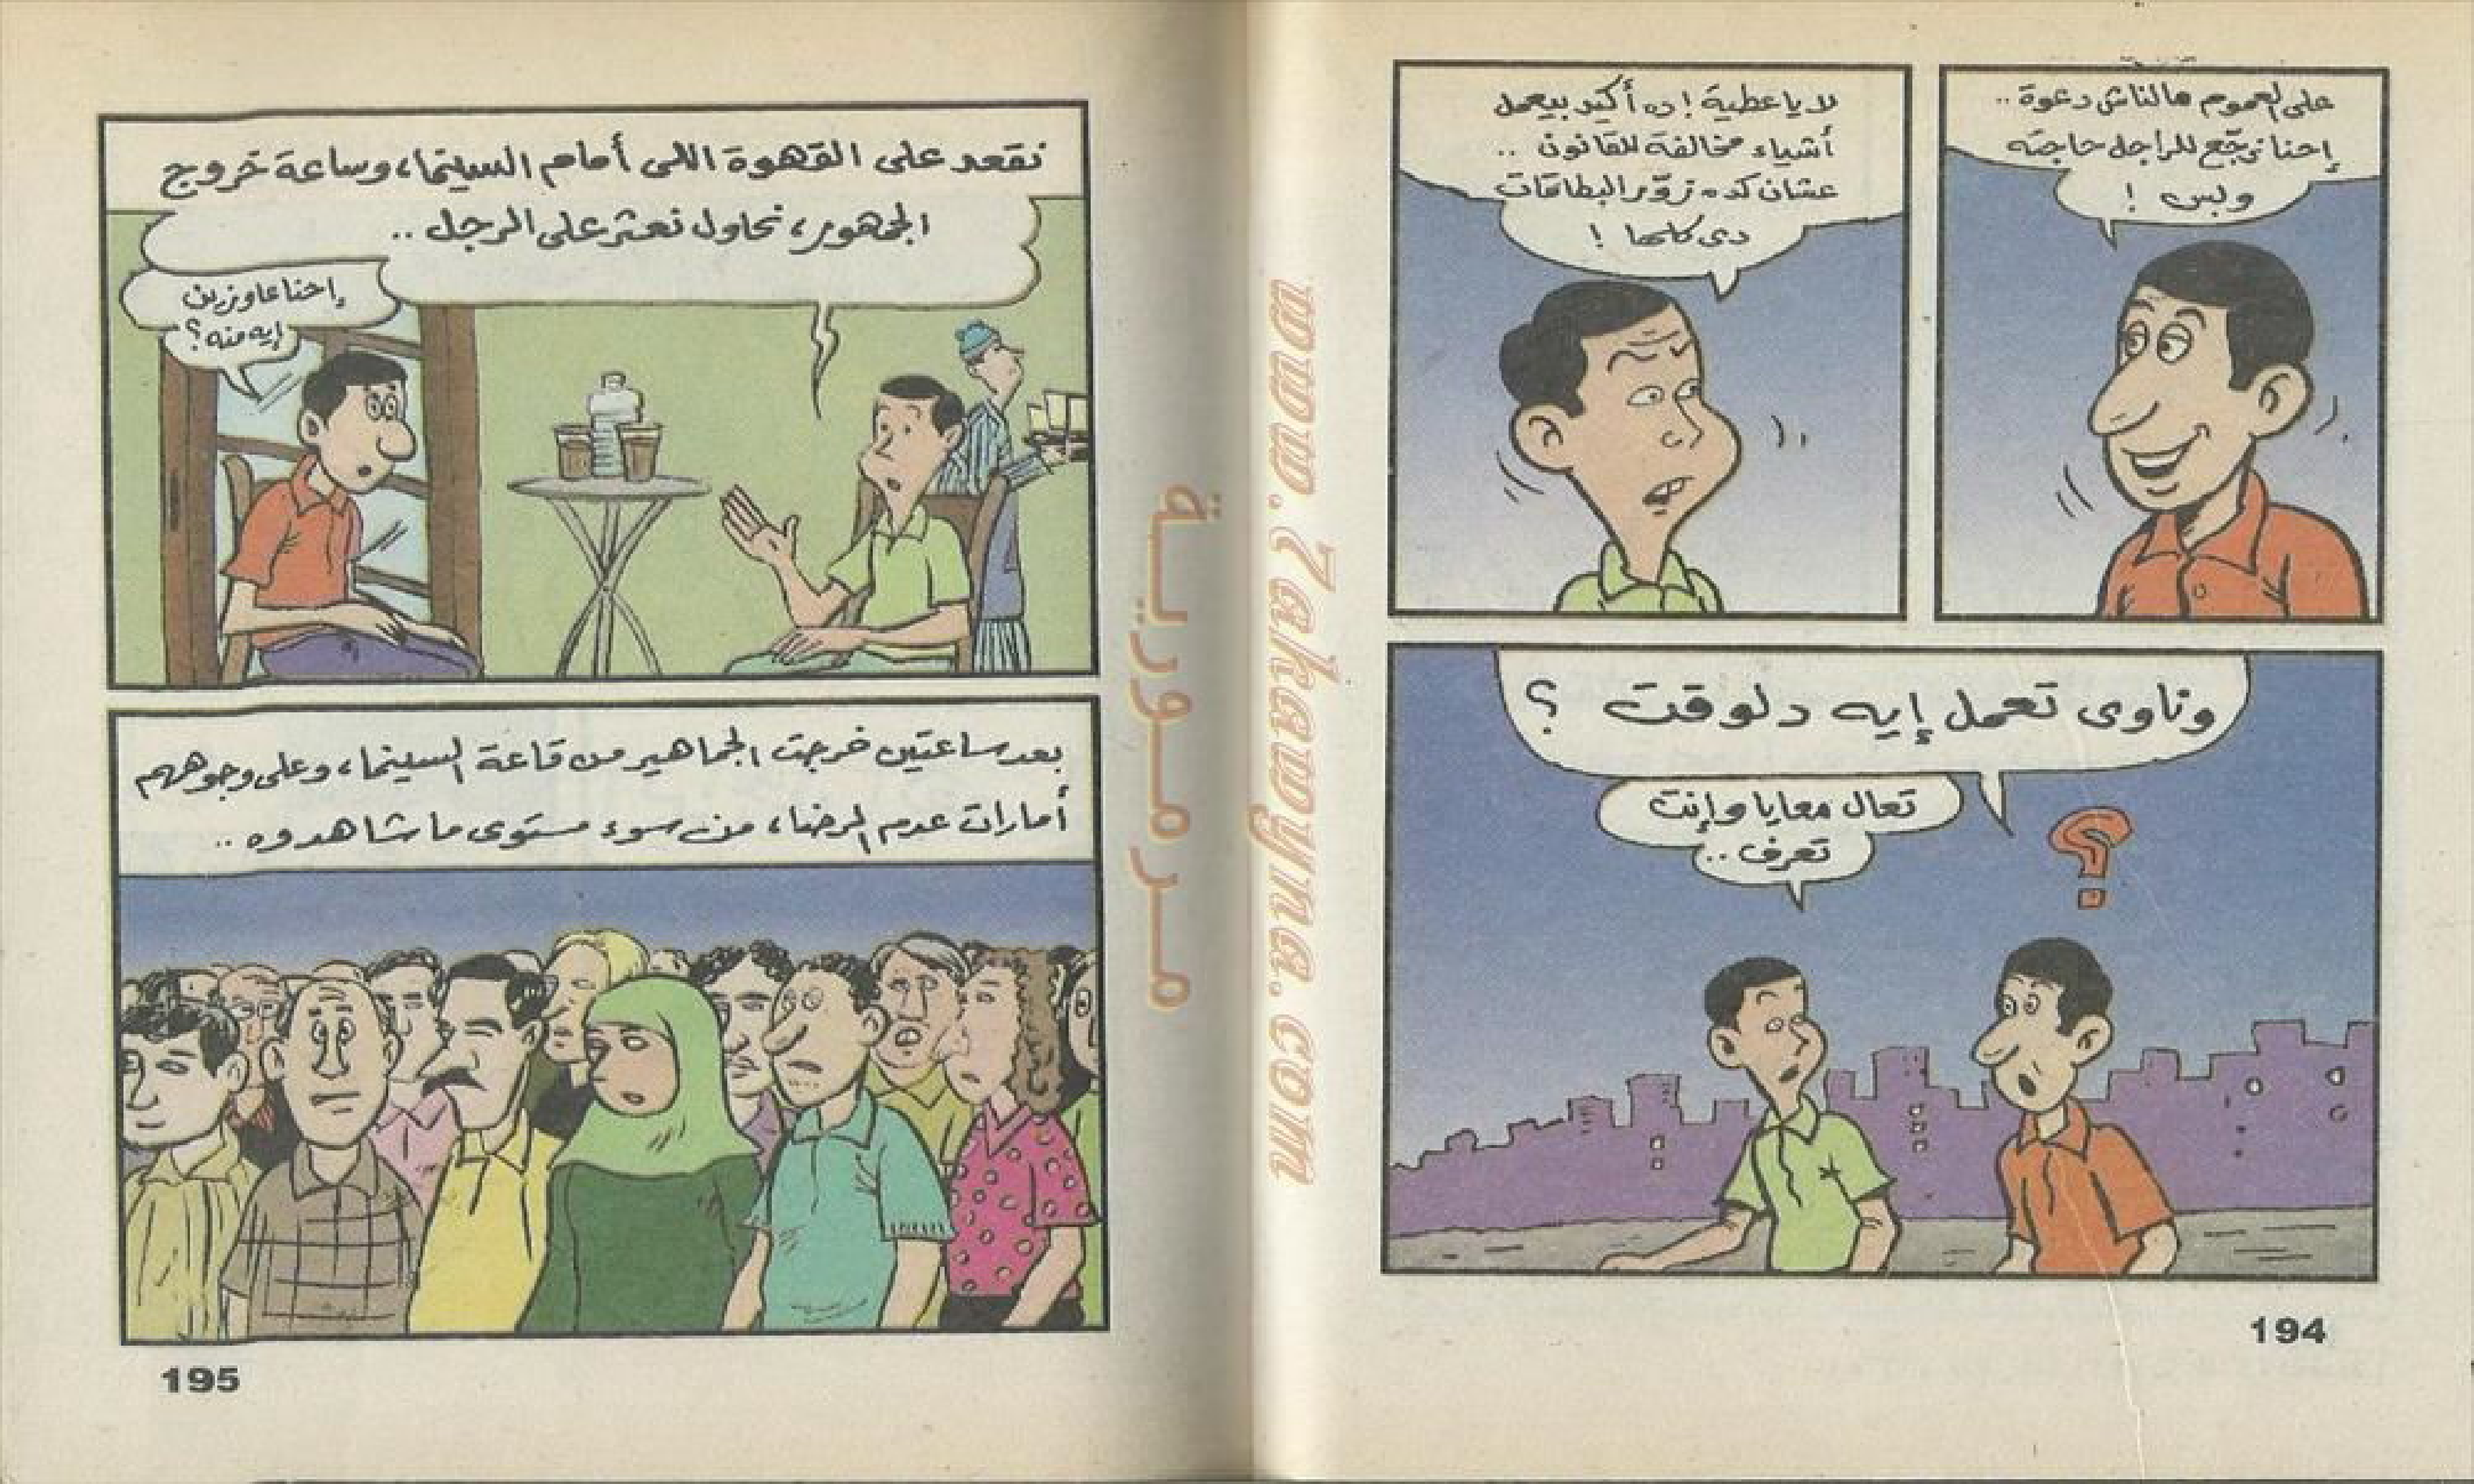 على العموم مالناش دعوة ..
إحنا نرجّع للراجل حاجته
وبس !
لا يا عطية ! ده أكيد بيعمل
أشياء مخالفة للقانون ..
عشان كده زوّر البطاقات
دى كلها !
وناوى تعمل إيه دلوقت ؟
تعال معايا وإنت
تعرف ..
194
نقعد على القهوة اللى أمام السينما، وساعة خروج
الجمهور، نحاول نعثر على الرجل ..
إحنا عاوزين
إيه منه ؟
بعد ساعتين خرجت الجماهير من قاعة السينما، وعلى وجوههم
أمارات عدم الرضا، من سوء مستوى ما شاهدوه ..
195
www.7akawyna.com
مرمورية